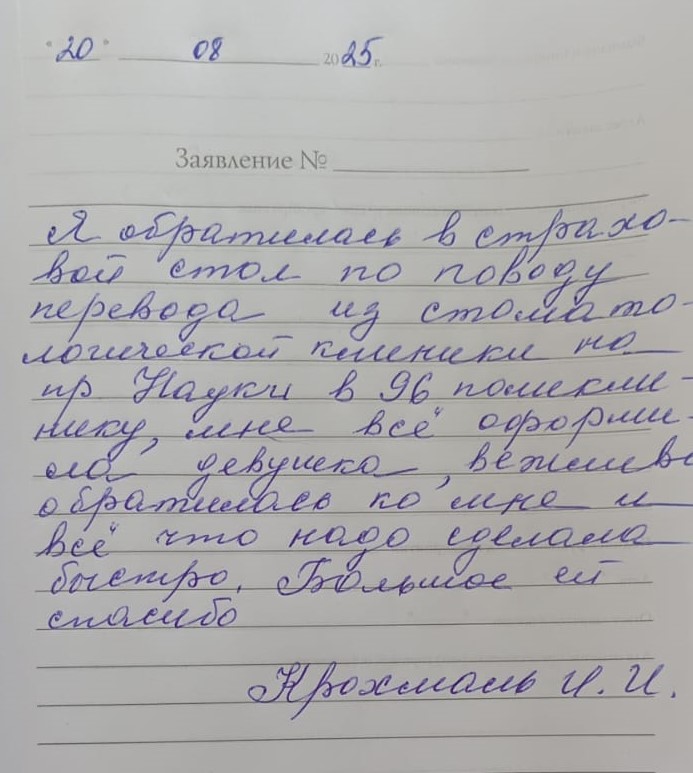 "20" 08 2025 г.
Заявление №
Я обратилась в страхо-
вой стол по поводу
перевода из стомато-
логической клиники на
пр Науки в 96 поликли-
нику, мне всё оформи-
ла девушка, вежливо
обратилась ко мне и
всё что надо сделала
быстро. Большое ей
спасибо
Крохмаль И. И.